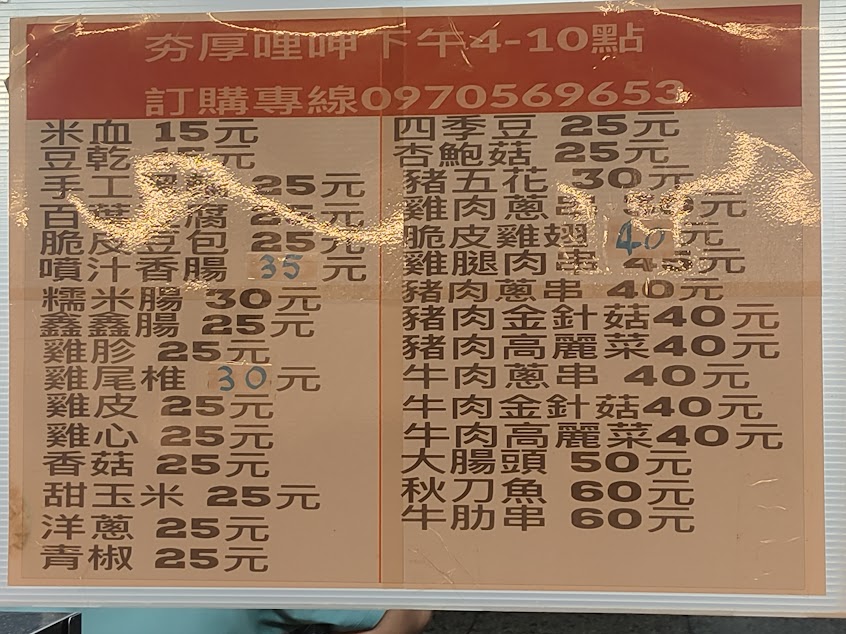 夯厚哩呷下午4-10點
訂購專線0970569653
米血 15元
豆乾 元
手工 25元
百葉 腐 25元
脆皮豆包 25元
噴汁香腸 35 元
糯米腸 30元
鑫鑫腸 25元
雞胗 25元
雞尾椎 30 元
雞皮 25元
雞心 25元
香菇 25元
甜玉米 25元
洋蔥 25元
青椒 25元
四季豆 25元
杏鮑菇 25元
豬五花 30元
雞肉蔥串 元
脆皮雞翅 40 元
雞腿肉串 45元
豬肉蔥串 40元
豬肉金針菇40元
豬肉高麗菜40元
牛肉蔥串 40元
牛肉金針菇40元
牛肉高麗菜40元
大腸頭 50元
秋刀魚 60元
牛肋串 60元